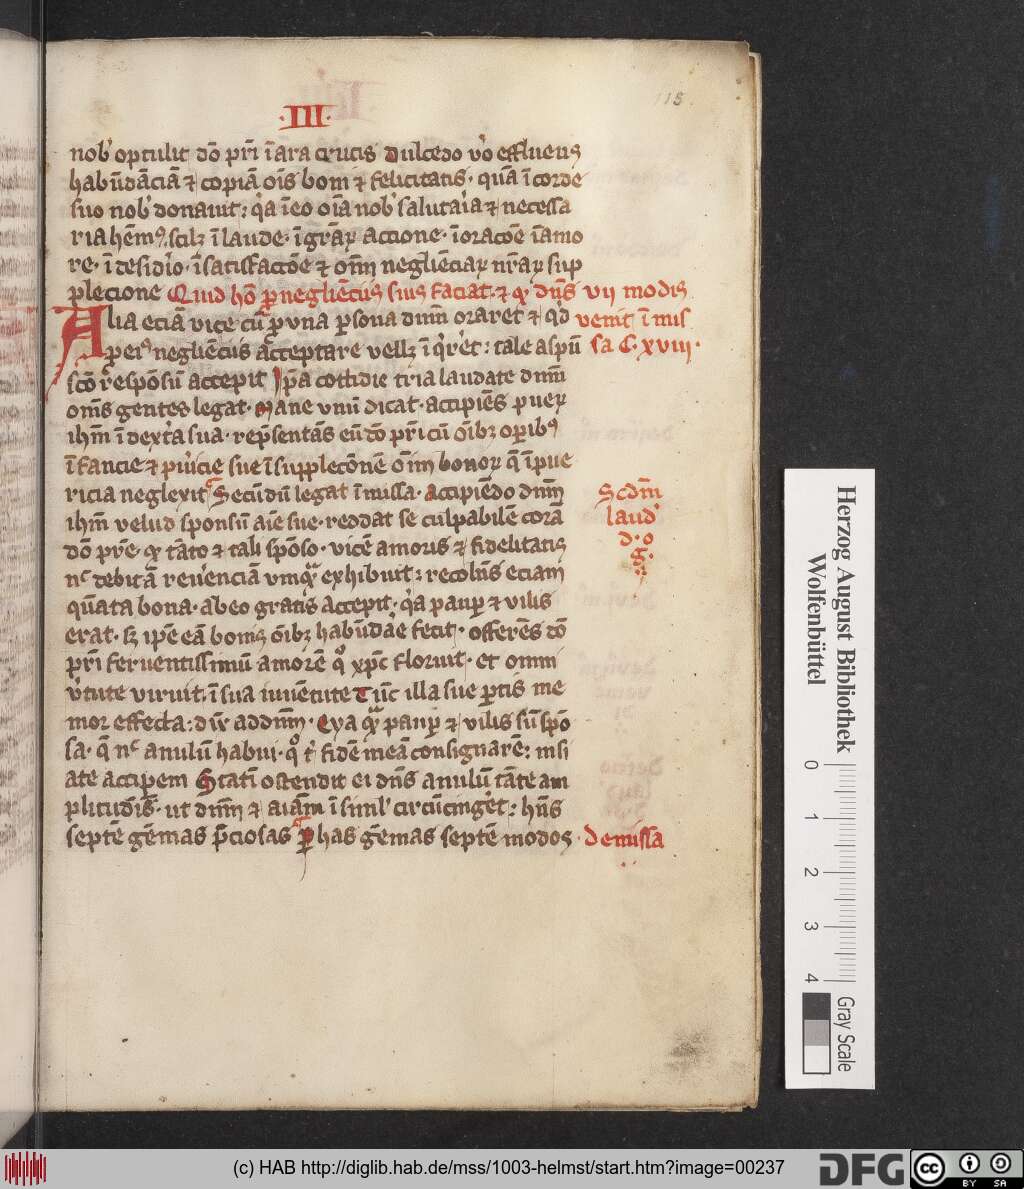 118
·III·
nob᾽ optulit dō pr̄i ī ara crucis dulcedo v̾o effluens
habūdāciā ⁊ copiā oīs boni ⁊ felicitatis · quā ī corde
suo nob᾽ donauit : q̾a ī eo oīa nob᾽ salutar̾ia ⁊ necessa
ria hēm⁹ scilꝫ ī laude · ī gr̄aꝝ accione · ī oracōe ī amo
re · ī desid̾io · ī satisfactōe ⁊ om̄i neglīeciaꝝ nr̄aꝝ sup
plecione Quid hō ꝓ neglīecijs suis faciat · ⁊ qꝰ dn̄s vij modis
Alia eciā vice cū ꝓ vna ꝑsona dnm̄ oraret ⁊ qd̾ venit ī mis
ꝑ ei⁹ neglīecijs acceptare vellꝫ ī q̾rer̾et : tale a spū sa C · xviij ·
scō respōsū accepit Ip̄a cottidie tria laudate dnm̄
om̄s gentes legat · Mane vnū dicat · accipiēs pueꝝ
ihm̄ ī dext̾a sua · rep̄sentās eū dō pr̄i cū oībꝫ oꝑib⁹
īfancie ⁊ pu̾icie sue ī supplecōnē oīm bonoꝝ q̄ ī pue
ricia neglexit Secūdū legat ī missa · accipiēdo dnm̄ Scd̄m
ihm̄ velud sponsū aīe sue · reddat se culpabilē corā laud᾽
dō pr̄e · qꝰ tāto ⁊ tali spōso · vicē amoris ⁊ fidelitatis d · o
nᶜ debitā reu̾enciā vmqᷓ exhibuit : recolēs eciam g ·
quāta bona · ab eo gratis accepit · q̾a pauꝑ ⁊ vilis
erat · sꝫ ip̄e eā bonis oībꝫ habūdāe fecit · offerēs dō
pr̄i feruentissimū amorē qͦ xp̄c floruit · et omni
v̾tute viruit · ī sua iuuētute Tūc illa sue ꝑtis me
mor effecta : dix̾ ad dnm̄ · Eya qᷓ pauꝑ ⁊ vilis sū spō
sa · q̄ nᶜ anulū habui · qͦ t̾ fidē meā consignarē : nisi
a te accipem Statī ostendit ei dn̄s anulū tāte am
plitudīs · ut dnm̄ ⁊ aīam ī simul circūcinger̾et : hn̄s
septē gēmas p̄ciosas ꝑ has gēmas septē modos · de missa
Herzog August Bibliothek
Wolfenbüttel
0 1 2 3 4
Gray Scale
(c) HAB http://diglib.hab.de/mss/1003-helmst/start.htm?image=00237
DFG
cc BY SA